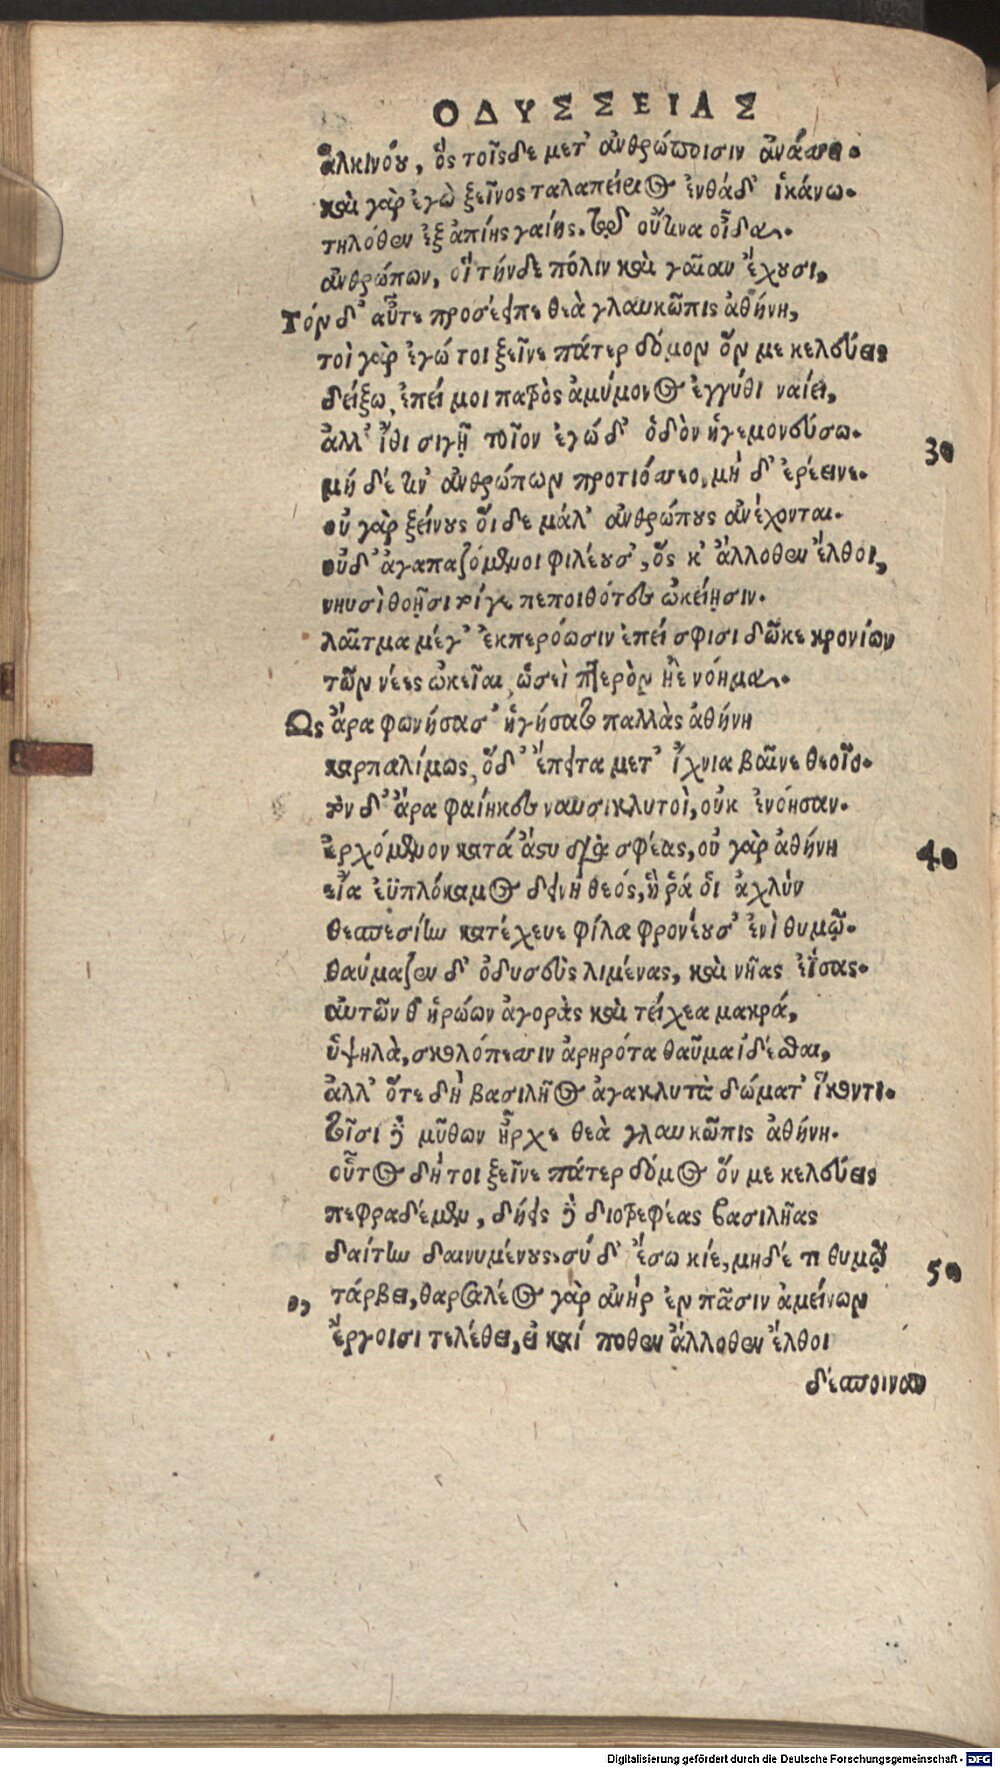 ΟΔΥΣΣΕΙΑΣ
ἀλκινόου, ὃς τοῖσδε μετ' ἀνθρώποισιν ἀνάσσει.
καὶ γὰρ ἐγὼ ξεῖνος ταλαπείριος ἐνθάδ' ἱκάνω.
τηλόθεν ἐξ ἀπίης γαίης. τῷ οὔτινα οἶδα.
ἀνθρώπων, οἳ τήνδε πόλιν καὶ γαῖαν ἔχουσι,
Τὸν δ' αὖτε προσέειπε θεὰ γλαυκῶπις ἀθήνη,
τοὶ γὰρ ἐγώ τοι ξεῖνε πάτερ δόμον ὅν με κελεύεις
δείξω, ἐπεί μοι πατρὸς ἀμύμονος ἐγγύθι ναίει,
ἀλλ' ἴθι σιγῇ τοῖον ἐγώ δ' ὁδὸν ἡγεμονεύσω.
30
μή δέ τιν' ἀνθρώπων προτιόσσεο, μὴ δ' ἐρέεινε.
οὐ γὰρ ξείνους οἵ δε μάλ' ἀνθρώπους ἀνέχονται.
οὐδ' ἀγαπαζόμενοι φιλέουσ', ὅς κ' ἄλλοθεν ἔλθοι,
νηυσὶ θοῇσι τοίγε πεποιθότες ὠκείῃσιν.
λαῖτμα μέγ' ἐκπερόωσιν ἐπεί σφισι δῶκε κρονίων
τῶν νέες ὠκεῖαι, ὡσεὶ πτερὸν ἠὲ νόημα.
Ως ἄρα φωνήσασ' ἡγήσατο παλλὰς ἀθήνη
καρπαλίμως, ὅδ' ἔπειτα μετ' ἴχνια βαῖνε θεοῖο.
τὸν δ' ἄρα φαίηκες ναυσικλυτοὶ, οὐκ ἐνόησαν.
ἐρχόμενον κατά ἄστυ διὰ σφέας, οὐ γὰρ ἀθήνη
40
εἴα ἐϋπλόκαμος δεινὴ θεός, ἥ ῥά οἱ ἀχλὺν
θεσπεσίην κατέχευε φίλα φρονέουσ' ἐνὶ θυμῷ.
θαύμαζεν δ' ὀδυσεὺς λιμένας, καὶ νῆας ἐΐσας.
αὐτῶν θ' ἡρώων ἀγορὰς καὶ τείχεα μακρά,
ὑψηλὰ, σκολόπεσσιν ἀρηρότα θαῦμα ἰδέσθαι,
ἀλλ' ὅτε δὴ βασιλῆος ἀγακλυτὰ δώματ' ἵκοντο.
τοῖσι δὲ μύθων ἦρχε θεὰ γλαυκῶπις ἀθήνη.
οὗτος δή τοι ξεῖνε πάτερ δόμος ὅν με κελεύεις
πεφραδέμεν, δήεις δὲ διοτρεφέας βασιλῆας
δαίτην δαινυμένους. σύ δ' ἔσω κίε, μηδέ τι θυμῷ
50
τάρβει, θαρσαλέος γὰρ ἀνὴρ ἐν πᾶσιν ἀμείνων
ἔργοισι τελέθει, εἰ καί ποθεν ἄλλοθεν ἔλθοι
δέσποιναν
Digitalisierung gefördert durch die Deutsche Forschungsgemeinschaft - DFG